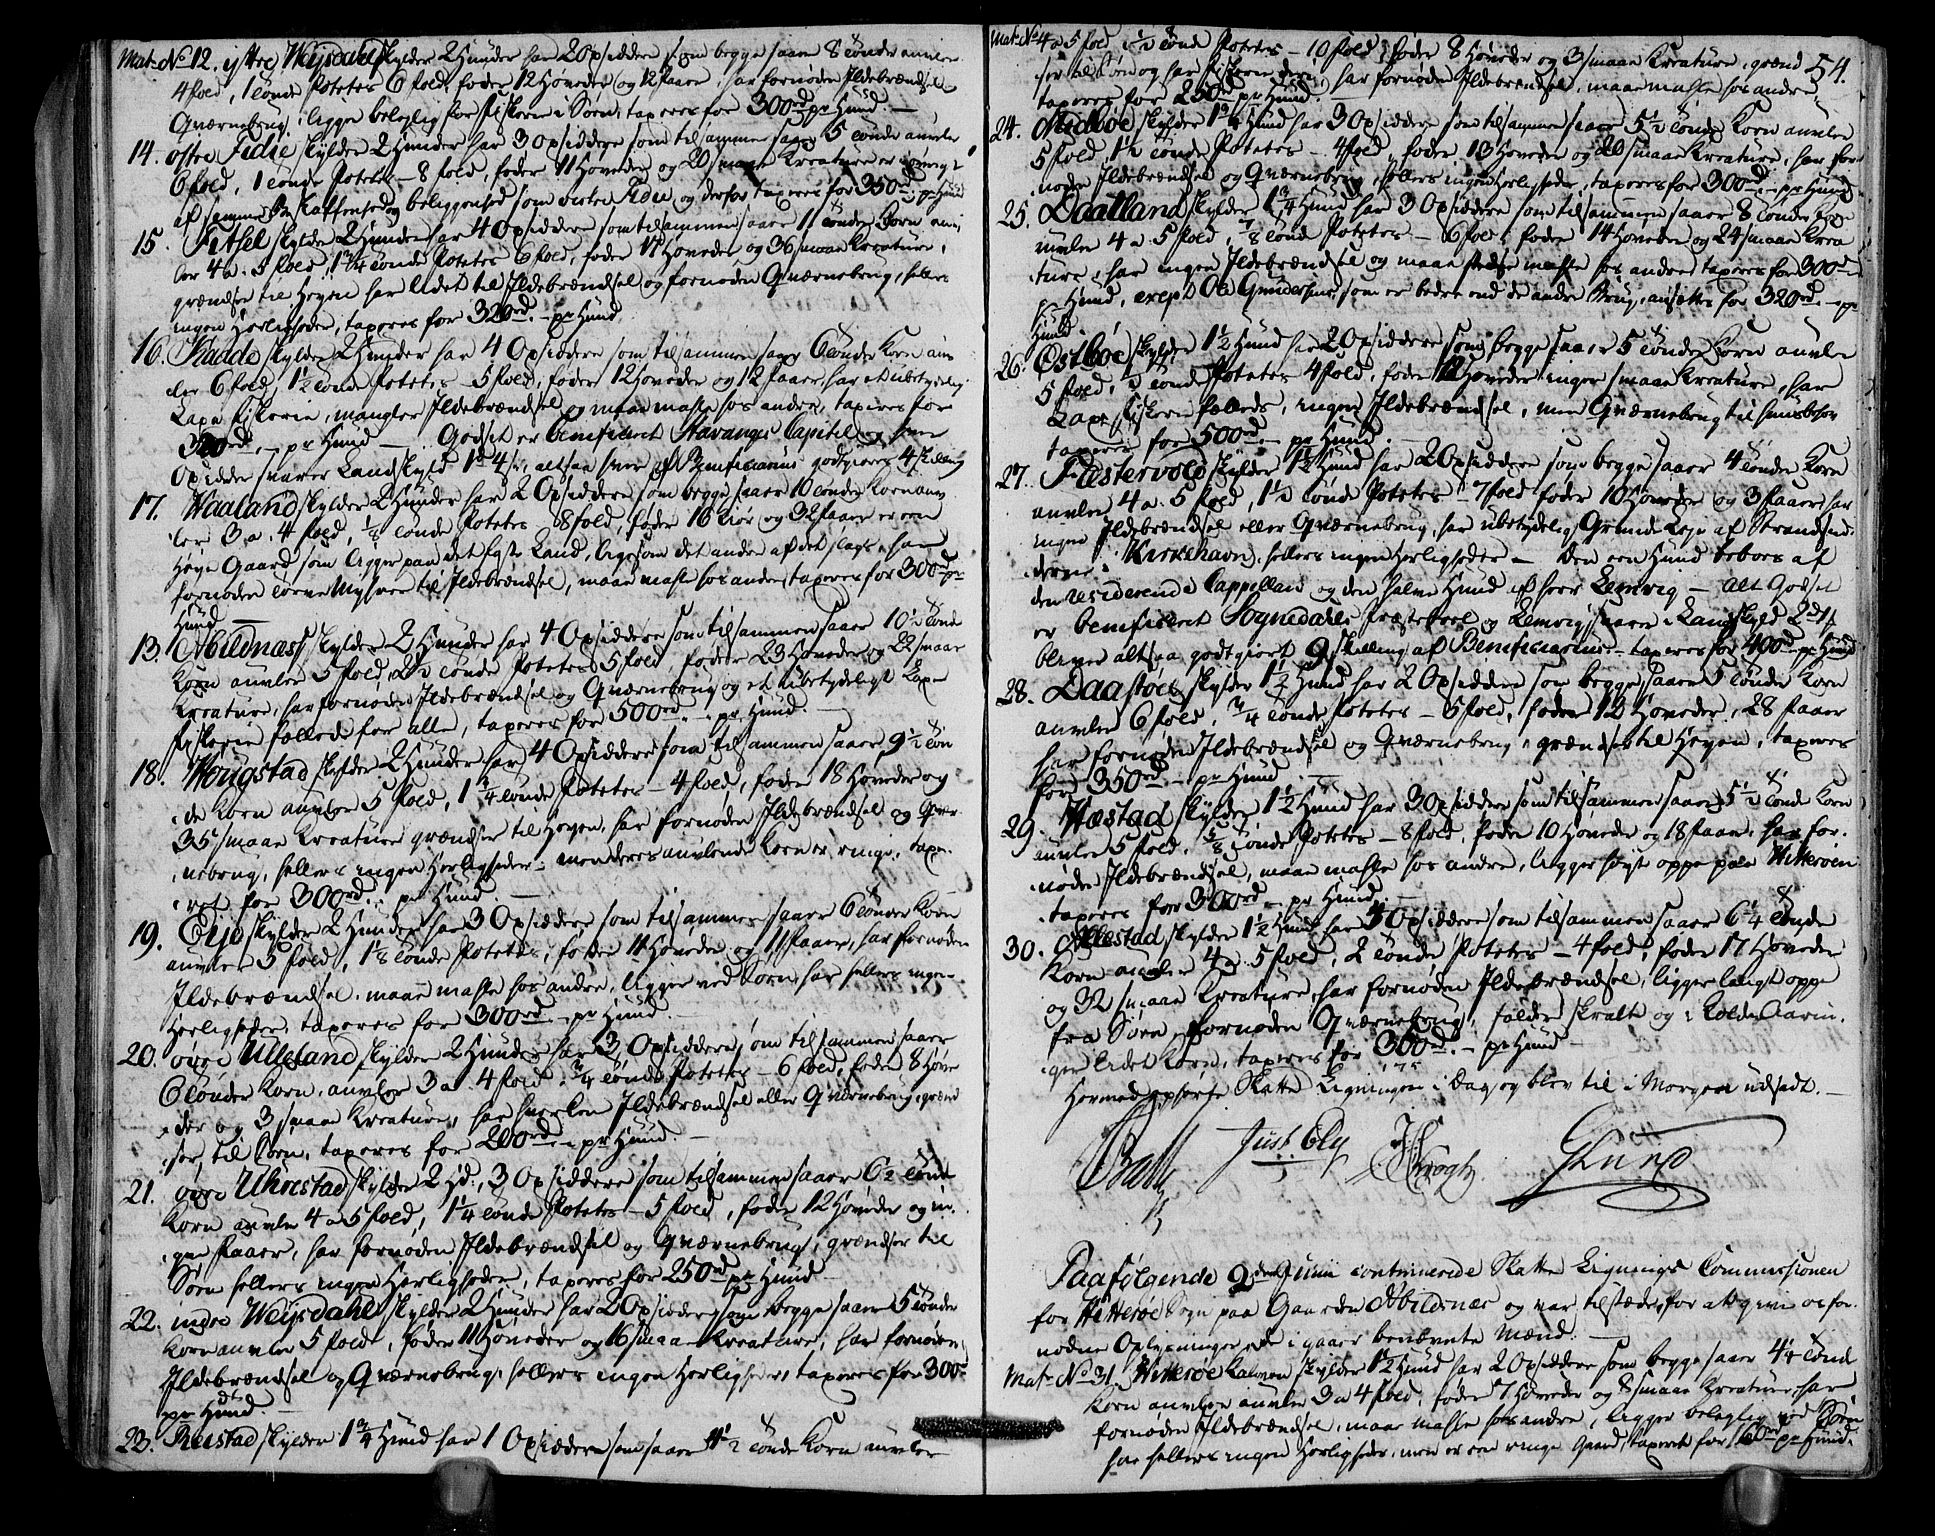 Mat: No 12. ystre Weysdahl skylder 2 Hunder har 2 Opsiddere som begge saar 8 tønder avvler
4 fold, 1 tønde Potetes 6 fold, føder 12 Hoveder og 12 Faar, har fornøden Ildebrændsel
Qværnebrug, ligger beleylig for fiskerie i Søen, taxeres for 300rd pr Hund. —
14. østre Fidie skylder 2 Hunder har 3 Opsiddere som tilsammen saar 5 tønder avvler
6 fold, 1 tønde Potetes – 8 fold, føder 11 Hoveder og 20 smaae Kreature er
af samme Beskaffenhed og beliggenhed som Fidie og derfor taxeres for 350rd pr Hund
15. Fitsel skylder 2 Hunder har 4 Opsiddere som tilsammen saar 11 tønder Korn avv.
ler 4 a 5 fold, 1 3/4 tønde Potetes 6 fold, føder 14 Hoveder og 36 smaae Kreature,
grændser til Heyen har lidet til Ildebrændsel og fornøden Qværnebrug, hellers
ingen Herligheder, taxeres for 320rd. – pr Hund
16. Stadde skylder 2 Hunder har 4 Opsiddere som tilsammen saar 6 tønder Korn avv
ler 6 fold, 1½ tønde Potetes – 5 fold, føder 12 Hoveder og 12 Faar, har et ubetydelig
Laxe fiskerie, mangler Ildebrændsel og maae masse hos andre, taxeres for
320rd. – pr Hund — Godset er beneficeret Stavanger Capitel og hver
Opsidder svarer Landskyld 1rd 4s, altsaa hver af Beneficiarius godtgiøres 4 skilling
17. Waaland skylder 2 Hunder har 2 Opsiddere som begge saar 10 tønder Korn avv.
ler 3 a 4 fold, 1/8 tønde Potetes 8 fold, føder 16 Kiør og 32 Faar er een
Høye Gaard som ligger paa det faste Land, ligesom det andre af det slags, har
fornøden tørve Myhrer til Ildebrændsel, maae masse hos andre, taxeres for 300rd pr
Hund —
13. Abildnæss skylder 2 Hunder har 4 Opsiddere som tilsammen saar 10½ tønde
Korn avvler 5 fold, 2½ tønde Potetes 5 fold, føder 23 Hoveder og 22 smaae
Kreature, har fornøden Ildebrændsel og Qværnebrug og et ubetydeligt Laxe
fiskerie fælleds for alle, taxeres for 500rd. – pr Hund. —
18. Hougstad skylder 2 Hunder har 4 Opsiddere som tilsammen saar 9½ tøn
de Korn avvler 5 fold, 1 3/4 tønde Potetes – 4 fold, føder 18 Hoveder og
35 smaae Kreature grændser til Heyen, har fornøden Ildebrændsel og Qvær
nebrug, hellers ingen Herligheder, men deres avvlende Korn er ringe, taxe.
ret for 300rd. – pr Hund —
19. Eije skylder 2 Hunder har 3 Opsiddere som tilsammen saar 6 tønder Korn
avvler 5 fold, 1 1/8 tønde Potetes, føder 11 Hoveder og 11 Faar, har fornøden
Ildebrændsel, maae masse hos andre, ligger ved Søen, har hellers ingen
Herligheder, taxeres for 300rd. – pr Hund.
20. øvre Ulleland skylder 2 Hunder har 3 Opsiddere, som tilsammen saar
6 tønder Korn, avvler 3 a 4 fold, 3/4 tønde Potetes – 6 fold, føder 8 Høve
der og 3 smaae Kreature, har hverken Ildebrændsel eller Qværnebrug, grænd
ser til Søen, taxeres for 200rd. – pr Hund. —
21. øvre Uhrestad skylder 2 Hd:, 3 Opsiddere som tilsammen saar 6½ tønde
Korn avvler 4 a 5 fold, 1 1/4 tønde Potetes – 5 fold, føder 12 Høveder og in.
gen Faar, har fornøden Ildebrændsel og Qværnebrug, grændser til
Søen hellers ingen Herligheder, taxeres for 250rd pr Hund —
22. indre Weysdahl skylder 2 Hunder har 2 Opsiddere, som begge saar 5 tønder
Korn avvler 5 fold, føder 11 Høveder og 16 smaae Kreature, har fornøden
Ildebrændsel og Qværnebrug, hellers ingen Herligheder, taxeres for 300rd
pr Hund. —
23. Reestad skylder 1 3/4 Hund har 1 Opsiddere som saar 4½ tønde Korn avvler
54.
Mat: No 4 a 5 fold ½ tønde Potetes – 10 fold, føder 8 Høveder og 3 smaae Kreature, grænd
ser til Søen og har fiskerie deri, har fornøden Ildebrændsel, maae masse hos andre
taxeres for 250rd pr Hund.
24. Midbøe skylder 1 3/4 Hund har 3 Opsiddere som tilsammen saar 5½ tønde Korn avvler
5 fold, 1½ tønde Potetes – 4 fold, føder 13 Hoveder og 20 smaae Kreature, har for
nøden Ildebrændsel og Qværnebrug, hellers ingen Herligheder, taxeres for 300rd. – pr Hund
25. Daatland skylder 1 3/4 Hund har 3 Opsiddere som tilsammen saar 8 tønder Korn
avvler 4 a 5 fold, 7/8 tønde Potetes – 6 fold, føder 14 Hoveder og 24 smaae Krea
ture, har ingen Ildebrændsel og maae masse hos andre taxeres for 300rd –
pr Hund, exept Ole Gundersens, som er bedre end de andre Brug, ansættes for 320rd. – pr
Hund
26. Østbøe skylder 1½ Hund har 2 Opsiddere som begge saar 5 tønder Korn avvler
5 fold, ½ tønde Potetes 4 fold, føder 12 Hoveder ingen smaae Kreature, har
Laxe fiskerie fælleds, ingen Ildebrændsel, men Qværnebrug til huusbehov
taxeres for 500rd. – pr Hund. —
27. Prestervold skylder 1½ Hund har 2 Opsiddere som begge saar 4 tønder Korn
avvler 4 a 5 fold, 1½ tønde Potetes – 7 fold føder 10 Hoveder og 3 Faar, har
ingen Ildebrændsel eller Qværnebrug, har ubetydelig Grunde Leje af Strandsid
derne i Kirkehavn, hellers ingen Herligheder — Den een Hund beboes af
den residerende Cappellan og den halve Hund af hver Lemvig — alt Godset
er beneficeret Sognedahls Præstebord og Lemvig svarer i Landskyld 2rd
bliver altsaa godtgiort 9 skilling af Beneficiarius – taxeres for 400rd pr Hund
28. Daastøel skylder 1½ Hund har 2 Opsiddere som begge saar 5 tønder Korn
avvler 6 fold, 3/4 tønde Potetes – 5 fold, føder 12 Hoveder, 28 Faar
har fornøden Ildebrændsel og Qværnebrug, grændser til Heyen, taxeres
for 350rd. – pr Hund —
29. Hæstad skylder 1½ Hund har 3 Opsiddere som tilsammen saar 5½ tønde Korn
avvler 5 fold, 5/8 tønde Potetes – 8 fold, føder 10 Høveder og 18 Faar, har for.
nøden Ildebrændsel, maae masse hos andre, ligger høyt oppe paa Hitterøen
taxeres for 300rd. – pr Hund.
30. Allestad skylder 1½ Hund har 3 Opsiddere som tilsammen saar 6 1/4 tønde
Korn avvler 4 a 5 fold, 2 tønde Potetes – 4 fold, føder 17 Hoveder
og 32 smaae Kreature, har fornøden Ildebrændsel, ligger langt oppe
fra Søen, fornøden Qværnebrug, falder skralt og i kolde Aarin.
ger lidet Korn, taxeres for 300rd. – pr Hund —
Hermed ophørte Skatte Ligningen i Dag og blev til i Morgen udsadt. —
Just Ely JKrogh GLund
Paafølgende 9de Junii continuerede Skatte Lignings Commissionen
for Hitterøe Sogn paa Gaarden Abildnæs og var tilstæde, for at give os for.
nøden Oplysninger, de i gaar benævnte Mænd. —
Mat: No 31. Hitterøe Kalven skylder 1½ Hund har 2 Opsiddere som begge saar 4 1/4 tønde
Korn avvler 3 a 4 fold, føder 7 Hoveder og 8 smaae Kreature, har
fornøden Ildebrændsel, maae masse hos andre, ligger beleylig ved Søen
har hellers ingen Herligheder, men er een ringe Gaard, taxeret for 160rd pr Hund.